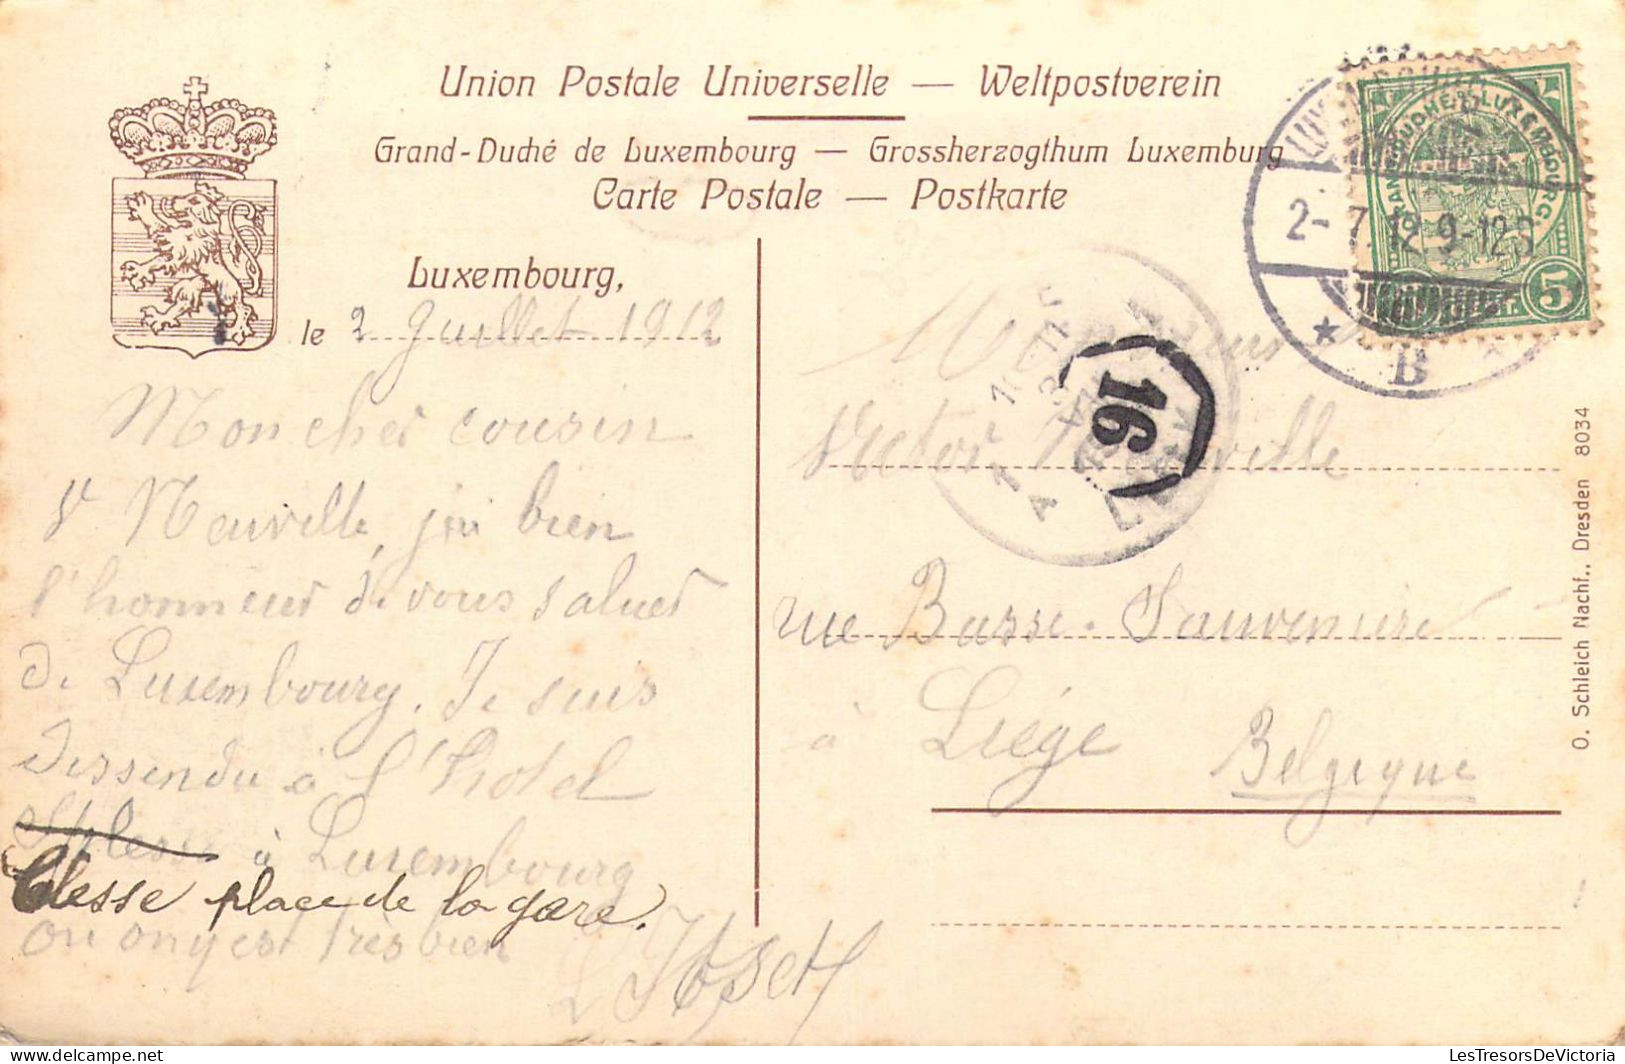 Union Postale Universelle — Weltpostverein
Grand-Duché de Luxembourg — Grossherzogthum Luxemburg
Carte Postale — Postkarte
Luxembourg,
le 2 Juillet 1912
Mon cher cousin
V Neuville, j'ai bien
l'honneur de vous saluer
de Luxembourg. Je suis
dessendu à l'hotel
à Luxembourg
Clesse place de la gare.
ou on y est très bien
Monsieur
Victor Neuville
rue Basse-Sauvenière
à Liége
Belgique
LUXEMBOURG
2-7.12 9-12
B
16
GRAND DUCHE DE LUXEMBOURG
5
O. Schleich Nachf., Dresden 8034
LesTresorsDeVictoria